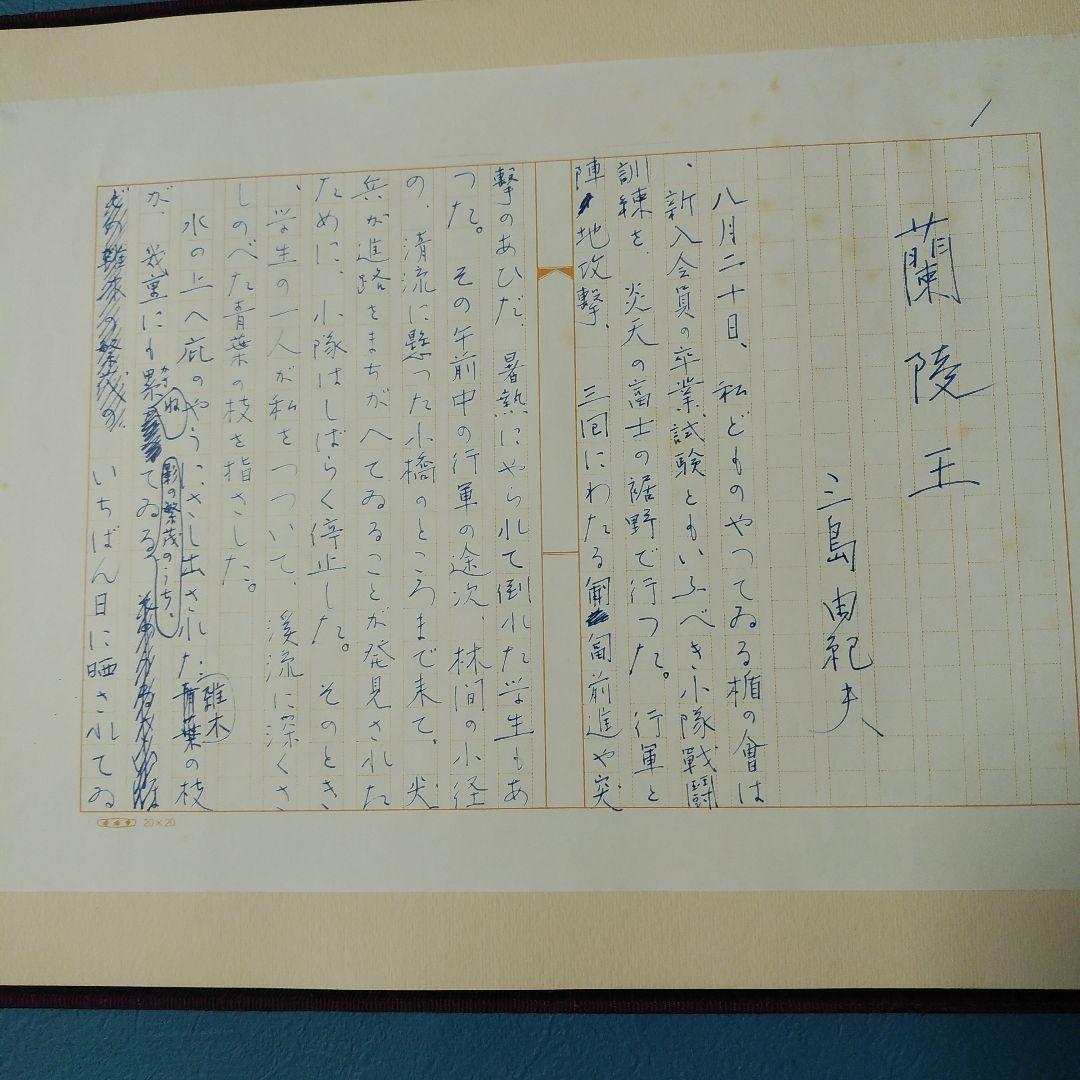 1
蘭陵王
三島由紀夫
八月二十日、私どものやつてゐる楯の會は
、新入会員の卒業試験ともいふべき小隊戦闘
訓練を、炎天の富士の裾野で行つた。行軍と
陣地攻撃、三回にわたる匍匐前進や突
撃のあひだ、暑熱にやられて倒れた学生もあ
つた。その午前中の行軍の途次、林間の小径
の、清流に懸つた小橋のところまで来て、尖
兵が進路をまちがへてゐることが発見された
ために、小隊はしばらく停止した。そのとき
、学生の一人が私をつついて、渓流に深くさ
しのべた青葉の枝を指さした。
水の上へ庇のやうにさし出された雑木の枝
が、幾重にも累ねてゐる影の繁茂のうち、
かさ
いちばん日に晒されてゐ
20×20